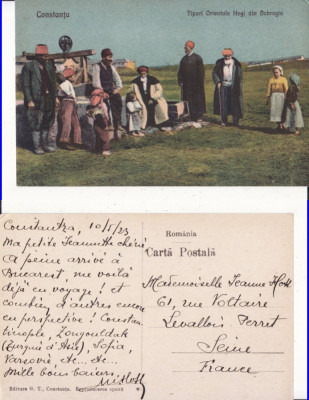 Constanța
Tipuri Orientale Hogi din Dobrogia
România
Carta Postala
Constantza, 10/5/23
Ma petite Jeannette chérie
A peine arrivé à
Bucarest, me voilà
déjà en voyage! et
combien d'autres encore
en perspective! Constan-
tinople, Zongouldak
(Turquie d'Asie), Sofia,
Varsovie etc... etc...
Mille bons baisers
Mademoiselle Jeanne
61, rue Voltaire
Levallois-Perret
Seine
France
Editura G. T., Constanța. Reproducerea oprită